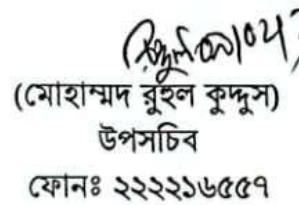 (মোহাম্মদ রুহুল কুদ্দুস)
উপসচিব
ফোনঃ ২২২২১৬৫৫৭